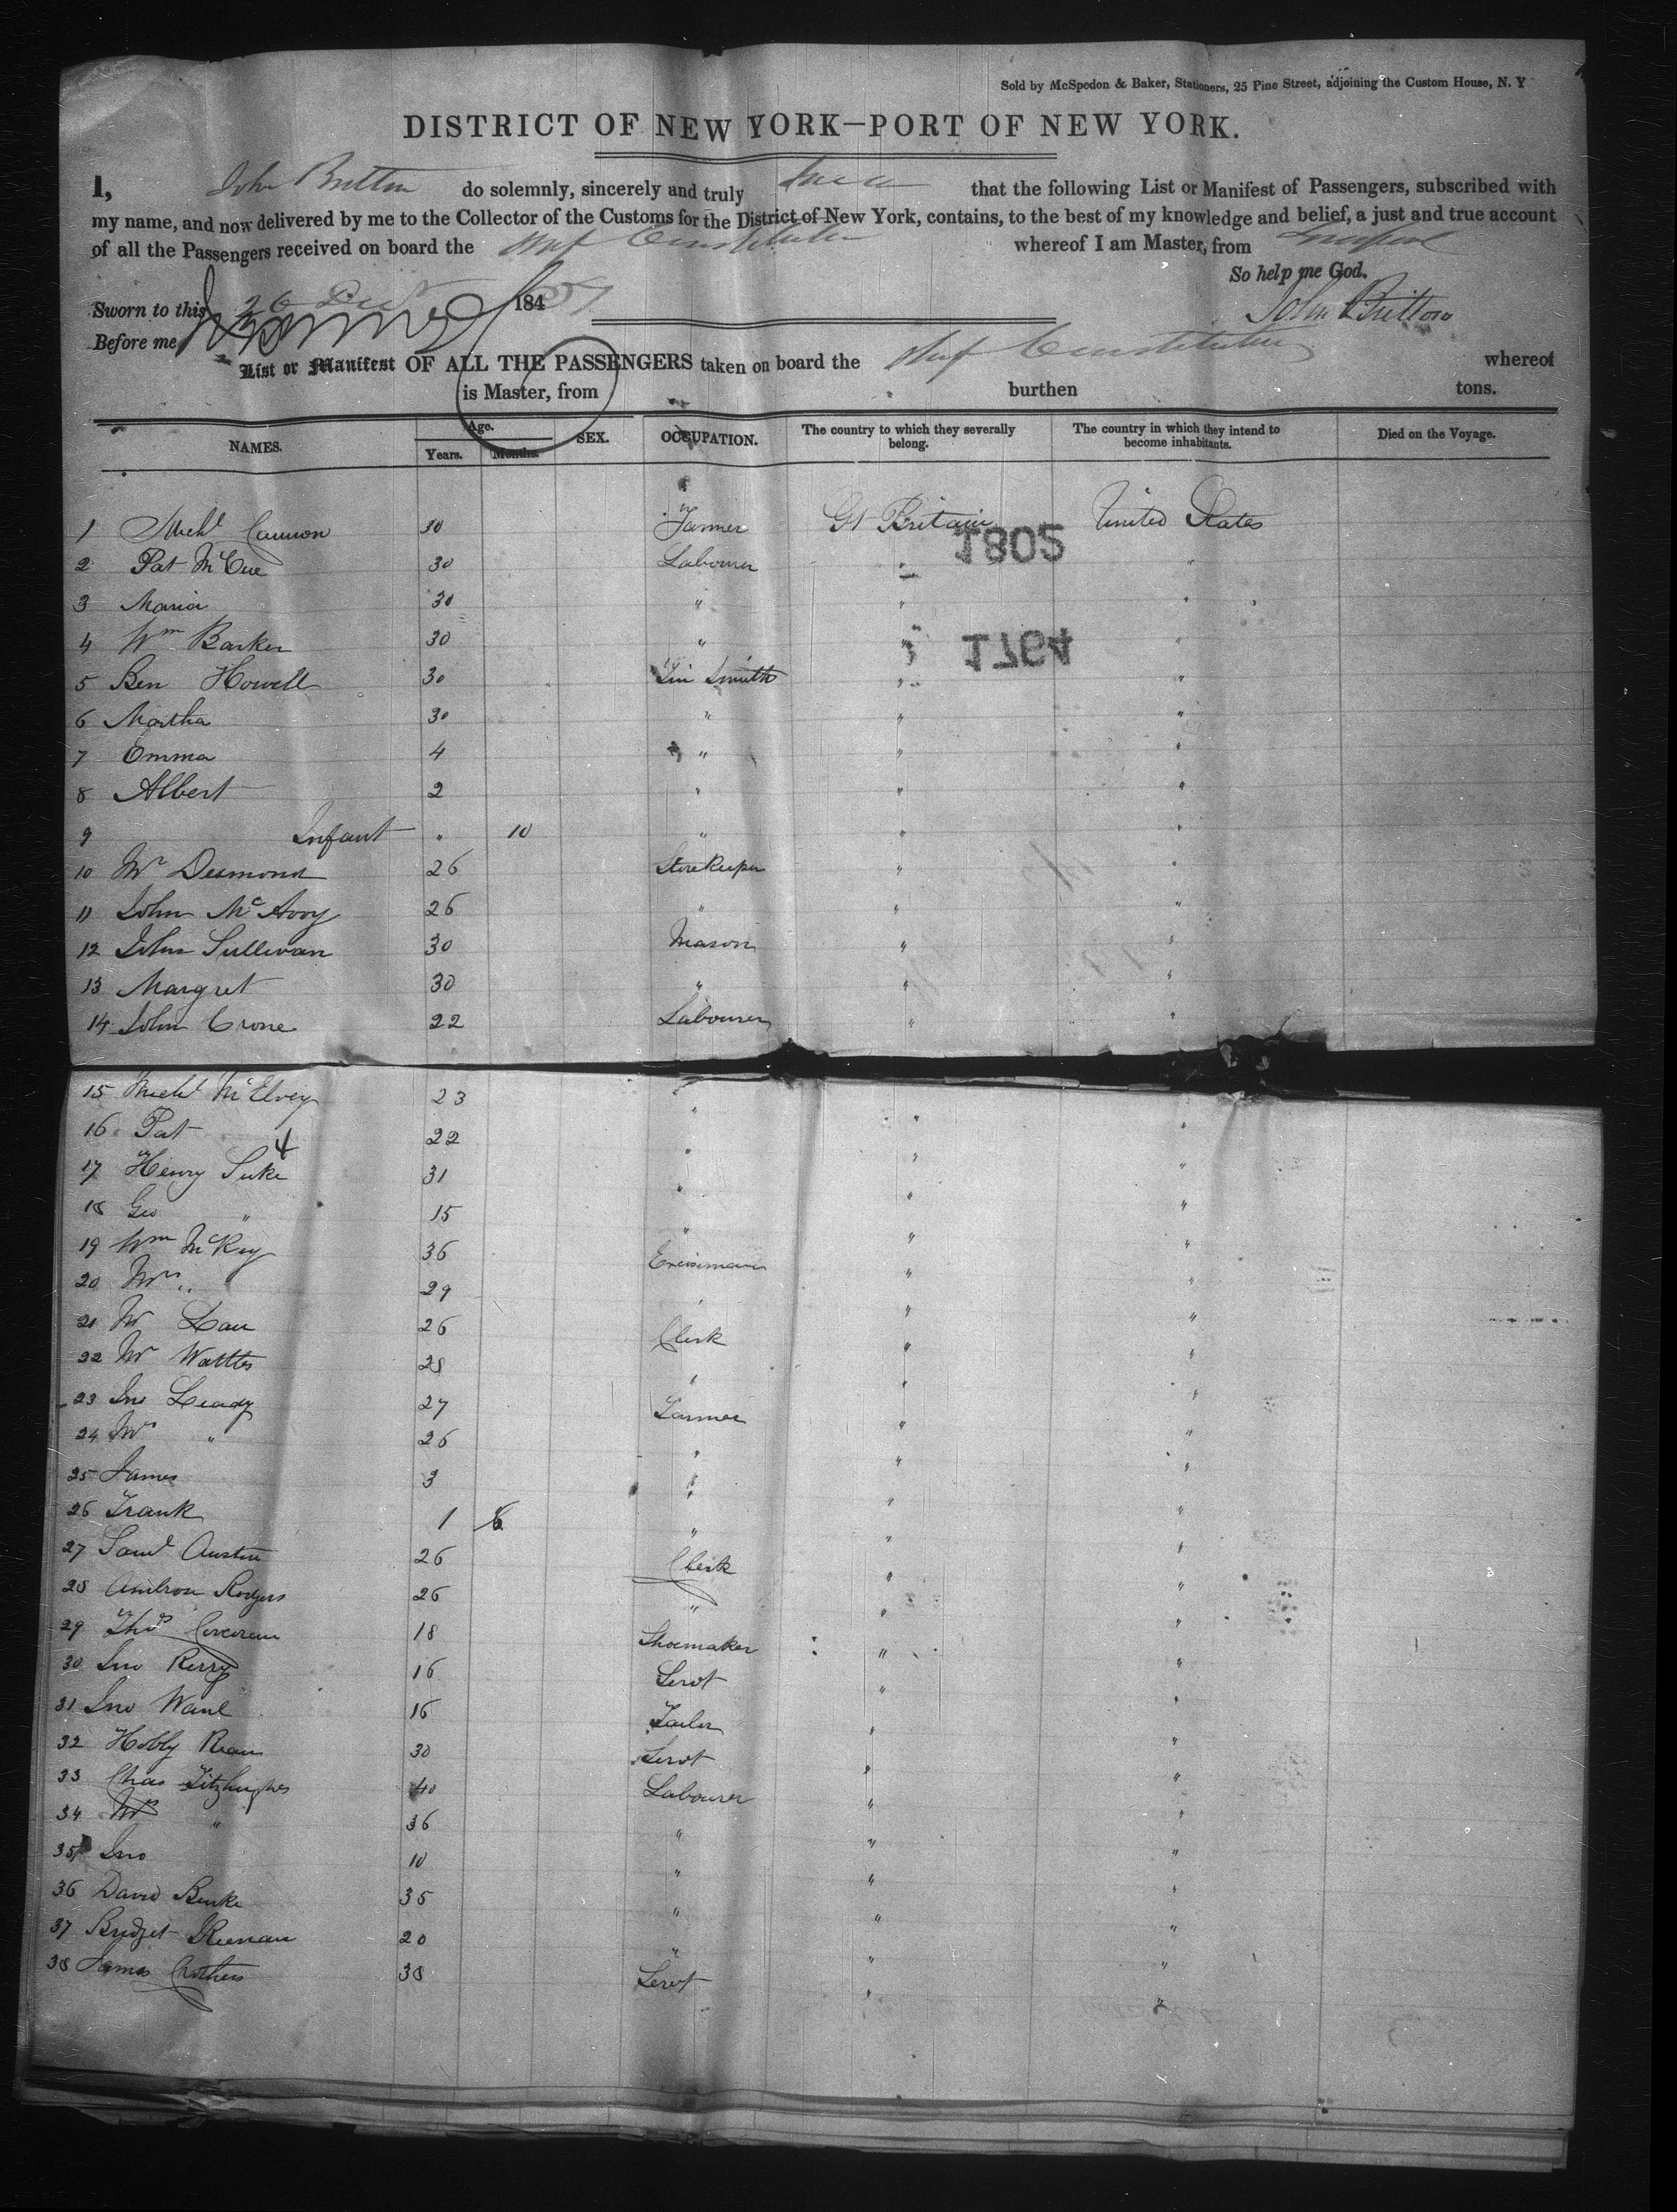 Sold by McSpedon & Baker, Stationers, 25 Pine Street, adjoining the Custom House, N. Y
DISTRICT OF NEW YORK—PORT OF NEW YORK.
I, John Britton do solemnly, sincerely and truly that the following List or Manifest of Passengers, subscribed with
my name, and now delivered by me to the Collector of the Customs for the District of New York, contains, to the best of my knowledge and belief, a just and true account
of all the Passengers received on board the Ship Constitution whereof I am Master, from Liverpool
So help me God.
Sworn to this 26 184
John Britton
Before me
List or Manifest OF ALL THE PASSENGERS taken on board the Ship Constitution whereof
is Master, from burthen tons.
NAMES. Age. Years. Months. SEX. OCCUPATION. The country to which they severally belong. The country in which they intend to become inhabitants. Died on the Voyage.
1 Michl Cannon 30 Farmer Gt Britain United States
1805
2 Pat McCue 30 Labourer " "
3 Maria 30 " " "
4 Wm Barker 30 " " "
1764
5 Ben Howell 30 Tin Smith " "
6 Martha 30 " " "
7 Emma 4 " " "
8 Albert 2 " " "
9 Infant " 10 " " "
10 Mr Desmond 26 Storekeeper " "
11 John McAvoy 26 " " "
12 John Sullivan 30 Mason " "
13 Margret 30 " " "
14 John Crone 22 Labourer " "
15 Michl McElvey 23 " " "
16 Pat 22 " " "
4
17 Henry Suke 31 " " "
18 Geo " 15 " " "
19 Wm McKey 36 Exciseman " "
20 Mrs " 29 " " "
21 Mr 26 Clerk " "
22 Mr Watttes 28 " " "
23 Jno Leady 27 Farmer " "
24 Mrs " 26 " " "
25 James 3 " " "
26 Frank 1 6 " " "
27 Saml Austin 26 Clerk " "
28 Ambrose Rodgers 26 " " "
29 Thos Corcoran 18 Shoemaker " "
30 Jno Kerry 16 Servt " "
31 Jno 16 Tailor " "
32 30 Servt " "
33 Chas Fitzhughes 40 Labourer " "
34 Mrs " 36 " " "
35 Jno 10 " " "
36 David Burke 35 " " "
37 Bridget Keenan 20 " " "
38 James Crothers 38 Servt " "